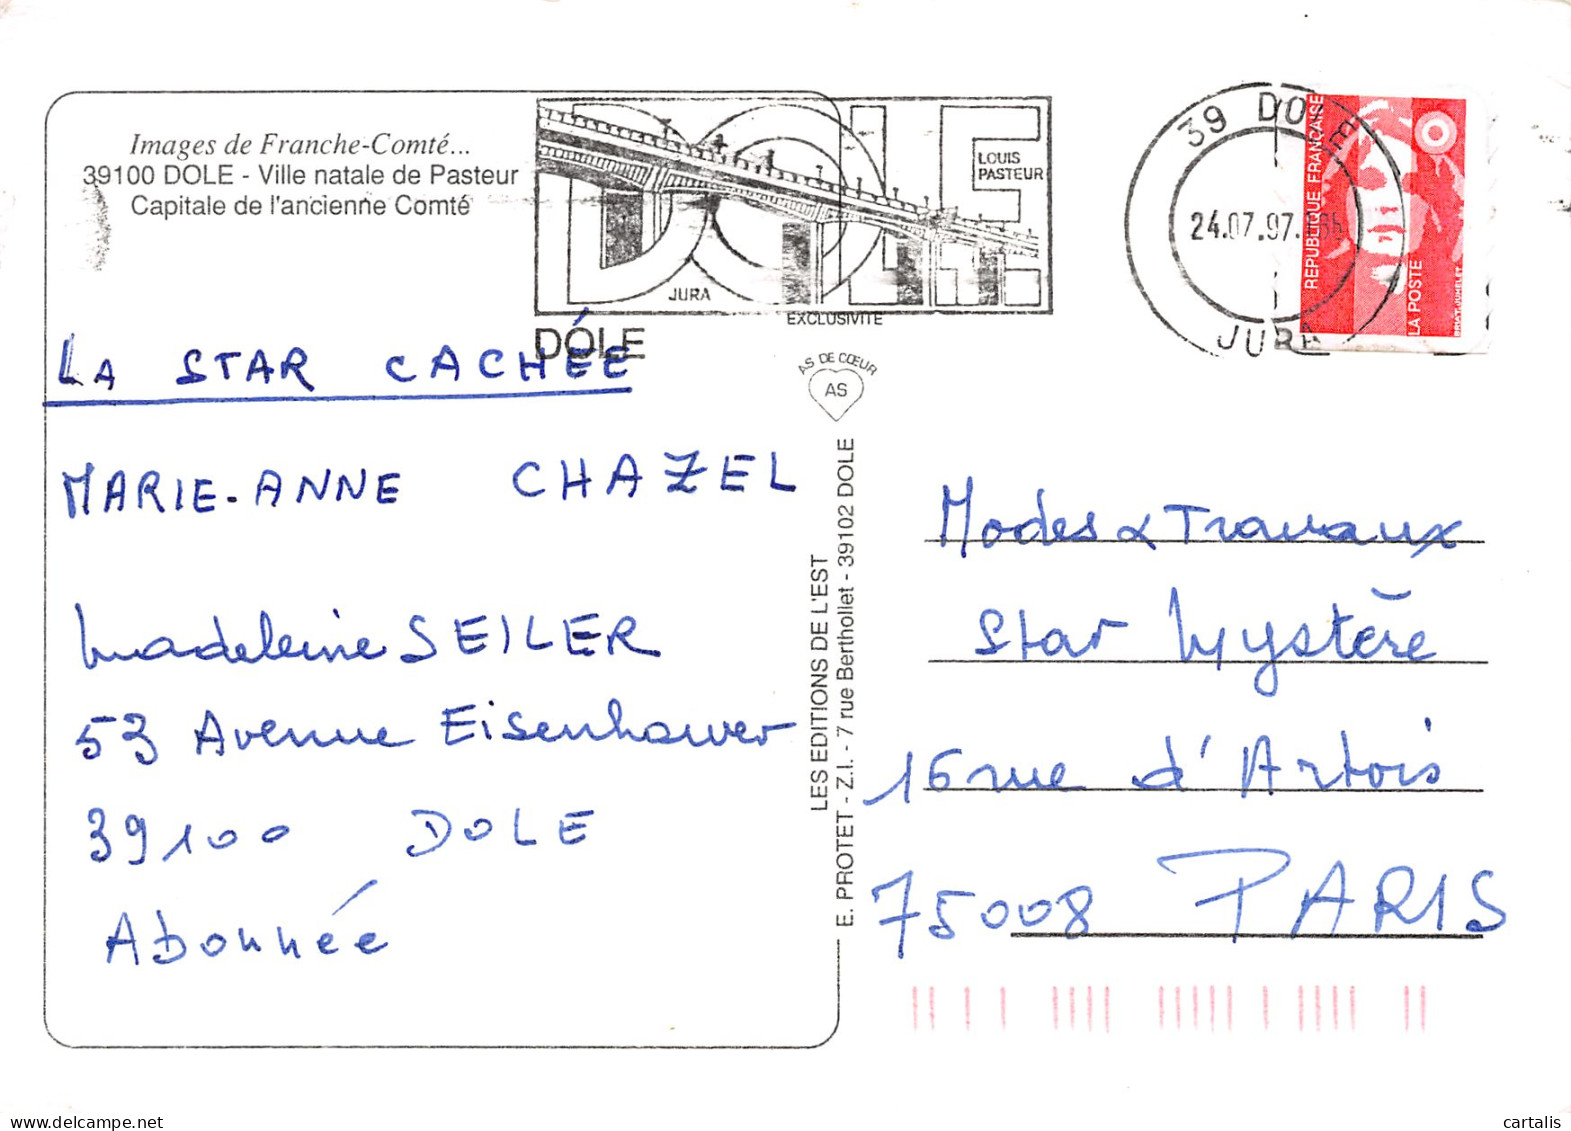 Images de Franche-Comté...
39100 DOLE - Ville natale de Pasteur
Capitale de l'ancienne Comté
DOLE
LOUIS
PASTEUR
JURA
DOLE
EXCLUSIVITE
AS DE CŒUR
AS
39 DOLE
24.07.97.
JURA
REPUBLIQUE FRANÇAISE
LA POSTE
BRIAT-JUMELET
LA STAR CACHÉE
MARIE-ANNE CHAZEL
Madeleine SEILER
53 Avenue Eisenhower
39100 DOLE
Abonnée
LES EDITIONS DE L'EST
E. PROTET - Z.I. - 7 rue Berthollet - 39102 DOLE
Modes & Travaux
Star Mystère
16 rue d'Artois
75008 PARIS
cartalis